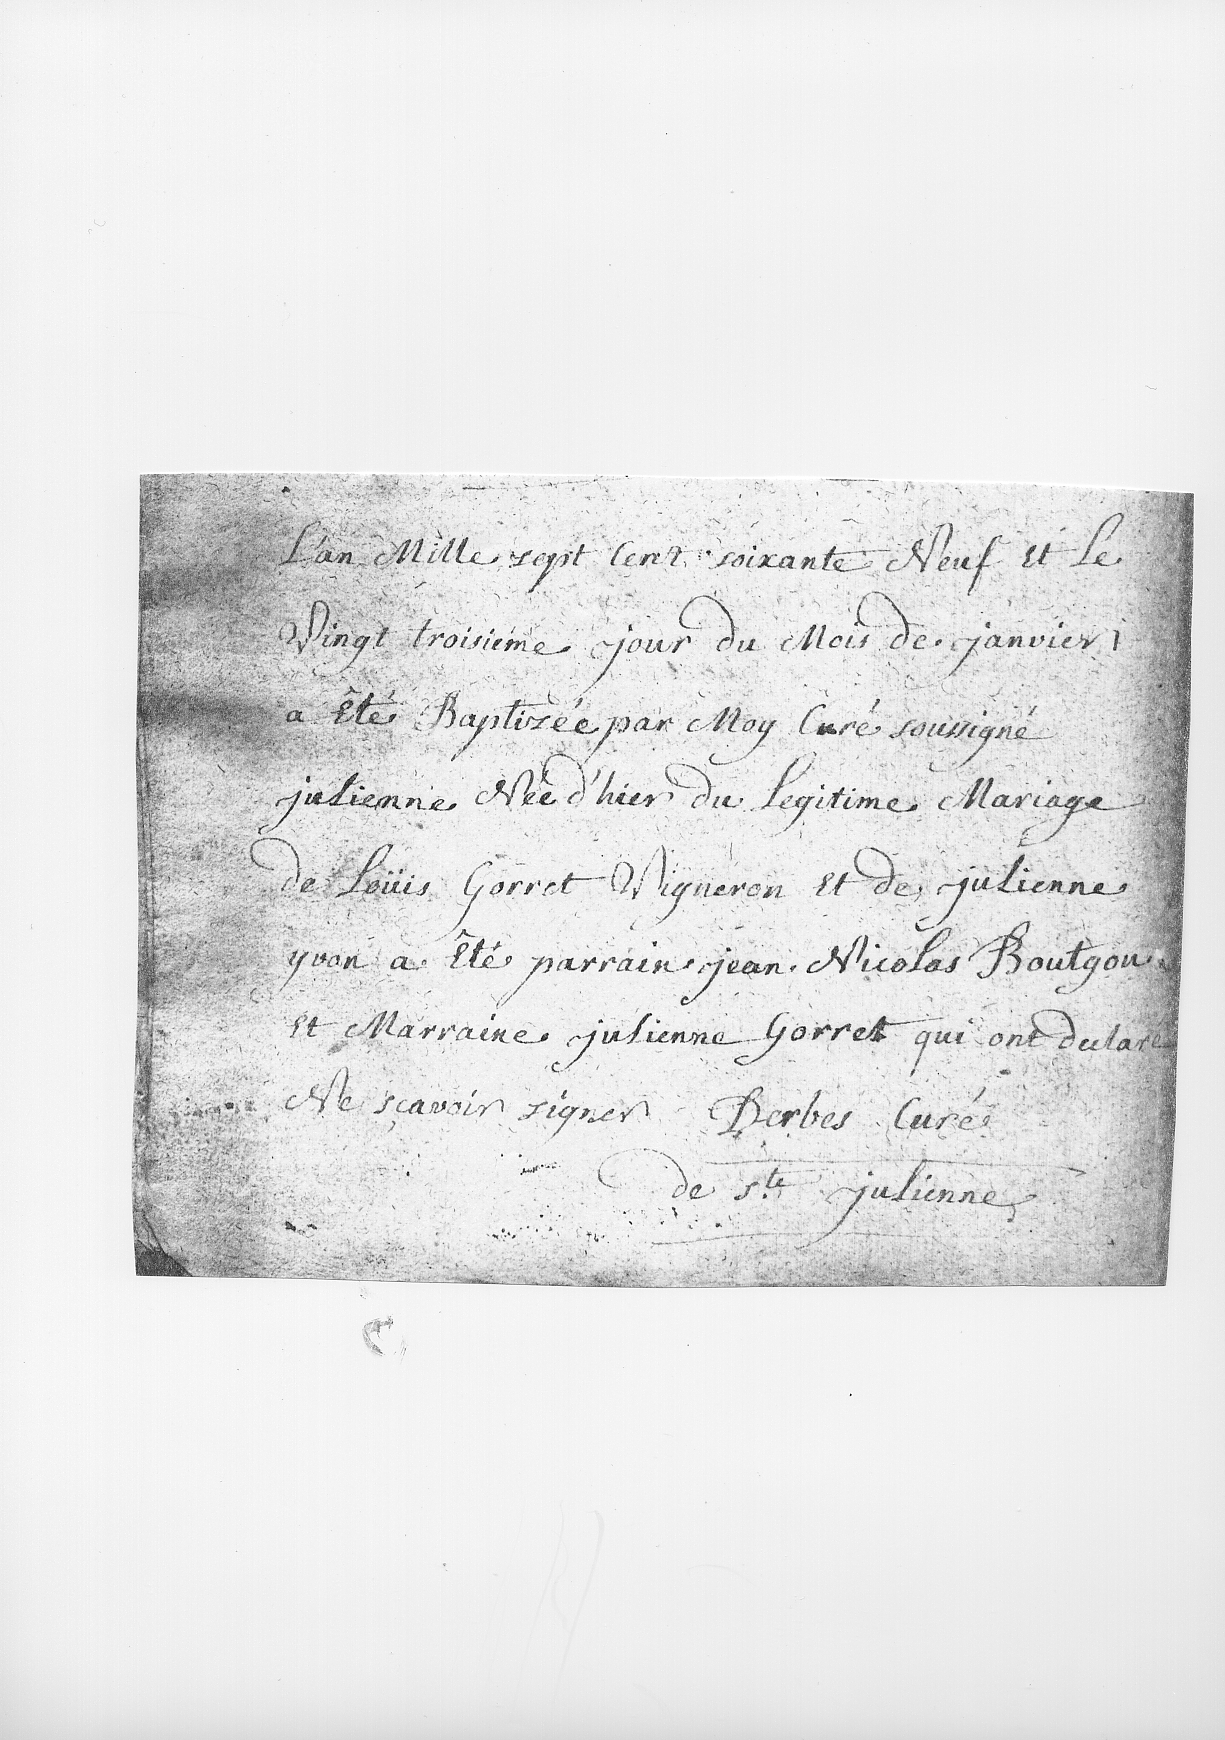 L'an Mille sept Cent soixante Neuf Et Le
Vingt troisieme jour du Mois de janvier
a Êté Baptizée par Moy Curé soussigné
julienne Née d'hier du Legitime Mariage
de Loüis Gorret Vigneron Et de julienne
yvon a Êté parrain jean Nicolas Boutgon
Et Marraine julienne Gorret qui ont declaré
Ne sçavoir signer Derbes Curé
de Ste julienne